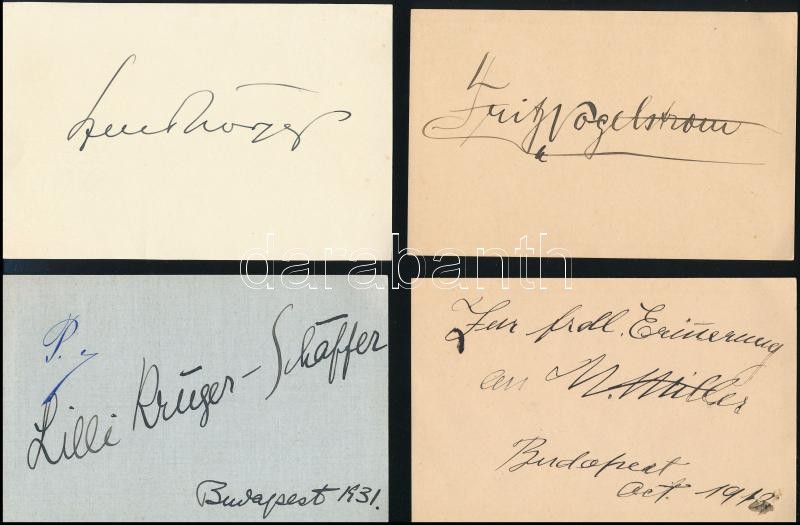 Fritz Vogelstrom
darabanth
P.
Lilli Krüger-Schäffer
Budapest 1931.
Zur frdl. Erinnerung
an M. Müller
Budapest
Oct. 1912